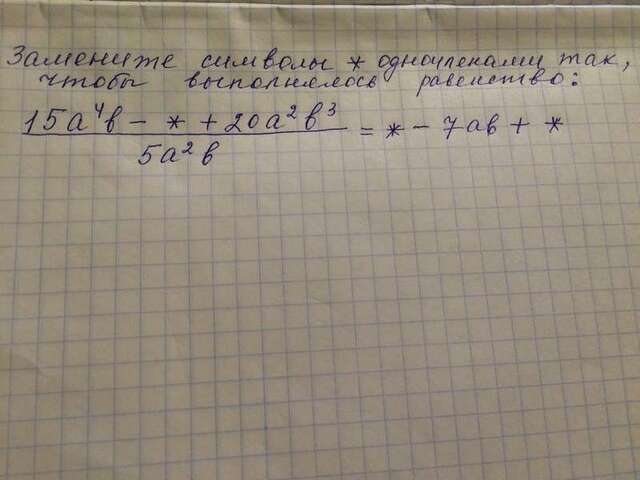 Замените символы * одночленами так,
чтобы выполнялось равенство:
15a⁴b - * + 20a²b³ / 5a²b = * - 7ab + *